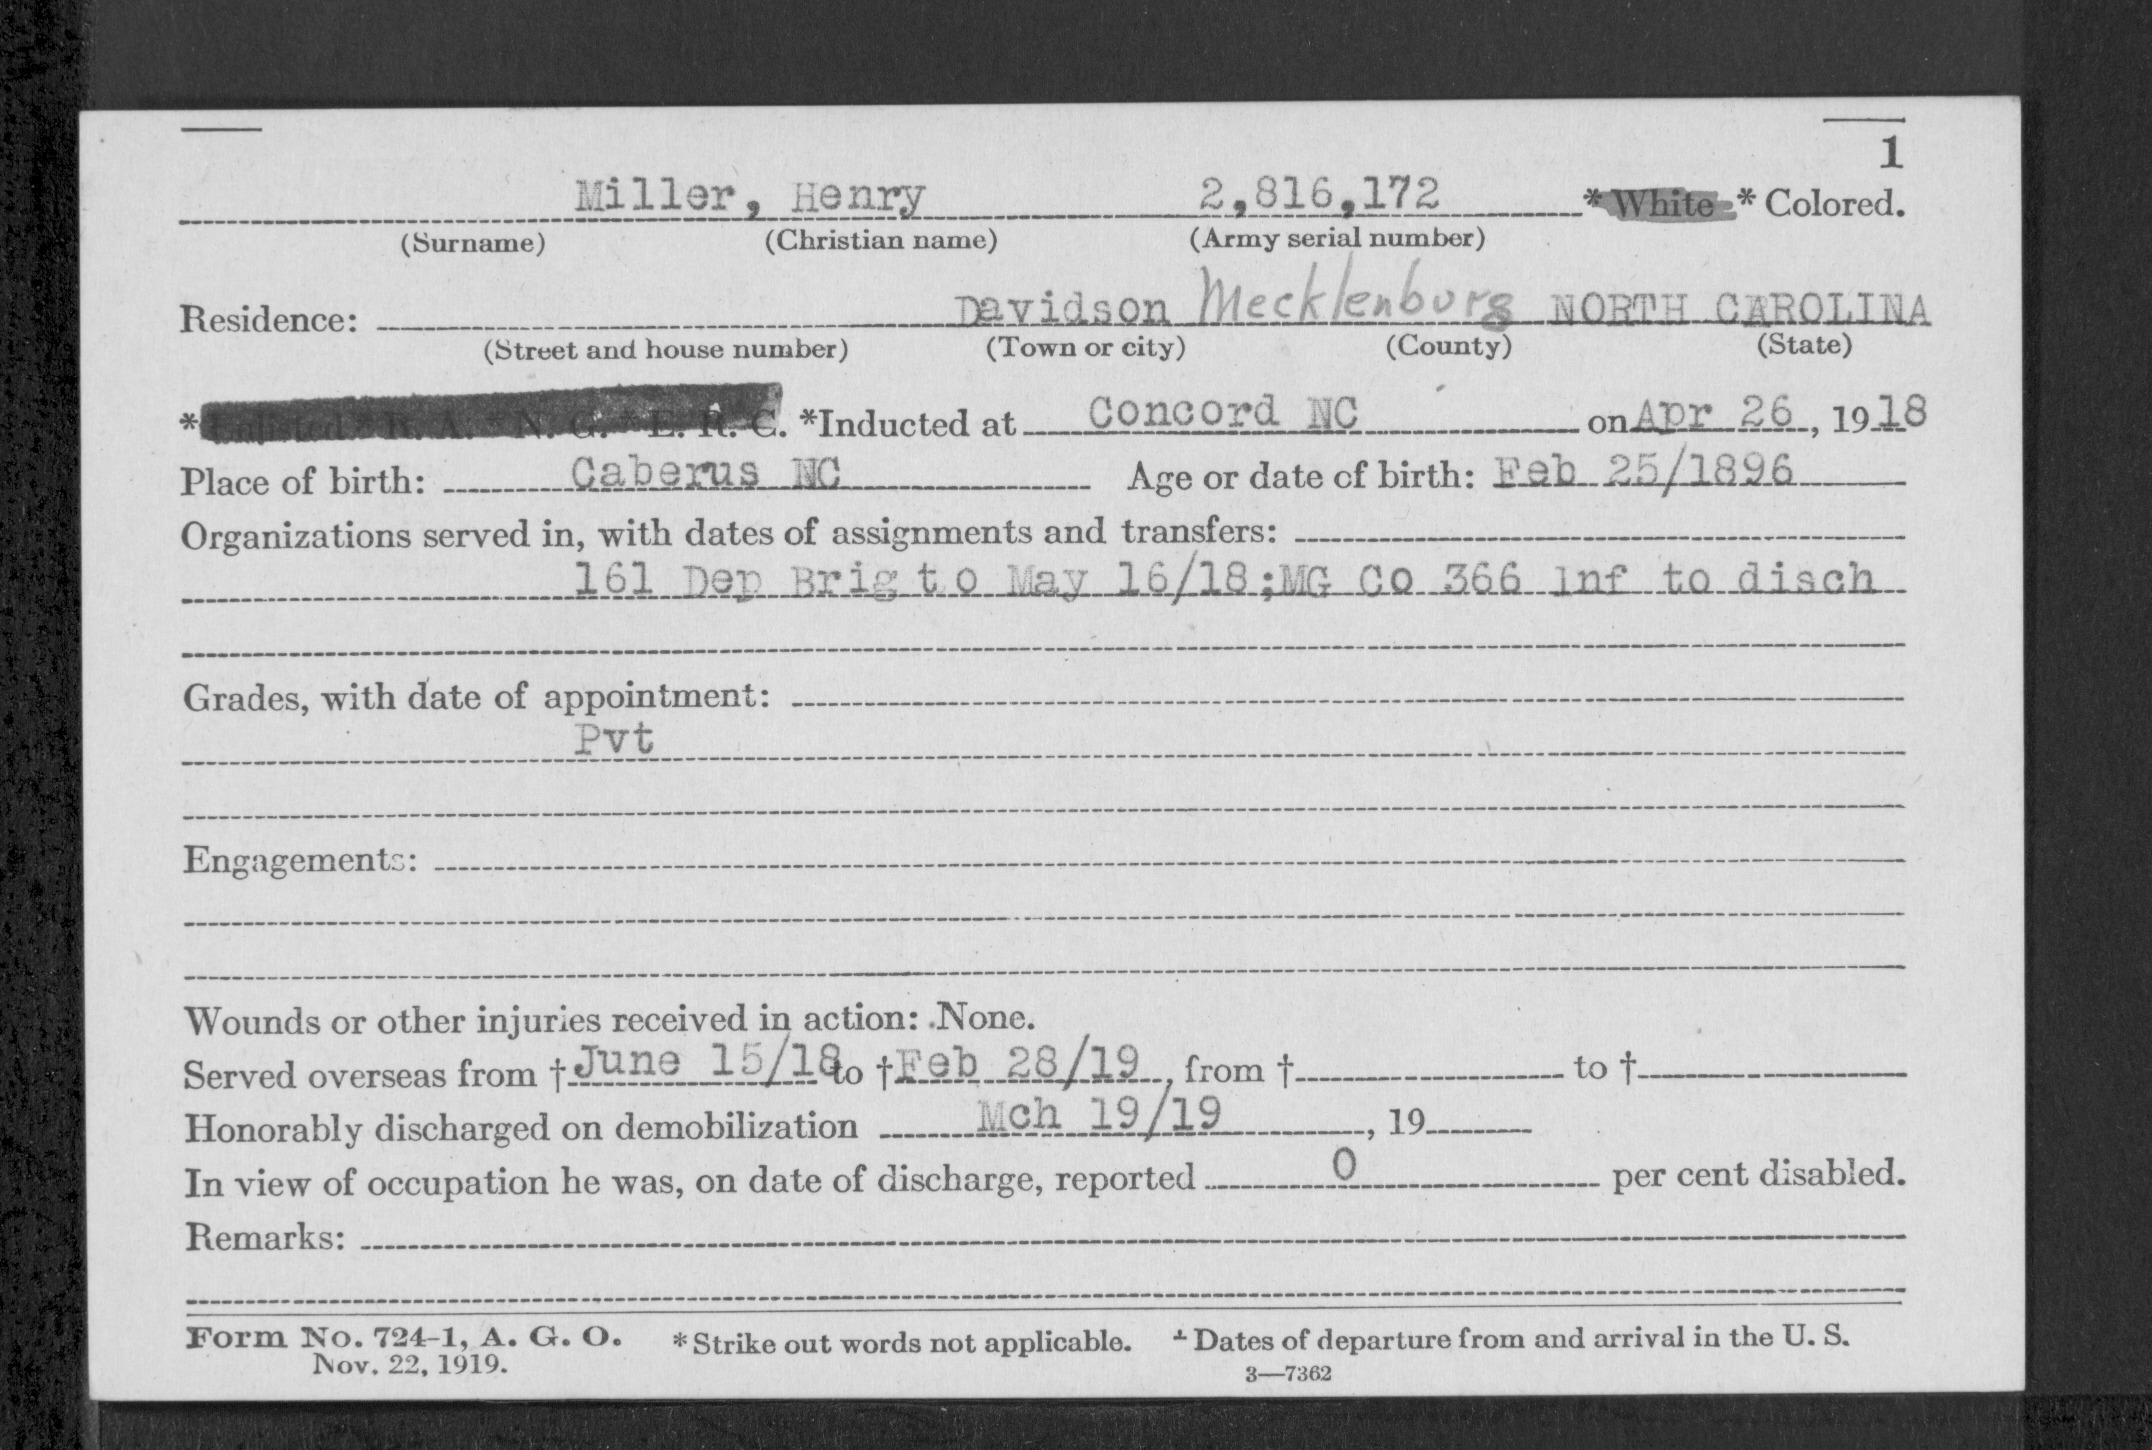 1
Miller, Henry 2,816,172 * White * Colored.
(Surname) (Christian name) (Army serial number)
Residence: Davidson Mecklenburg NORTH CAROLINA
(Street and house number) (Town or city) (County) (State)
* Enlisted * R. A. * N. G. * E. R. C. *Inducted at Concord NC on Apr 26, 1918
Place of birth: Caberus NC Age or date of birth: Feb 25/1896
Organizations served in, with dates of assignments and transfers:
161 Dep Brig to May 16/18;MG Co 366 Inf to disch
Grades, with date of appointment:
Pvt
Engagements:
Wounds or other injuries received in action: None.
Served overseas from † June 15/18 to † Feb 28/19, from † to †
Honorably discharged on demobilization Mch 19/19, 19
In view of occupation he was, on date of discharge, reported 0 per cent disabled.
Remarks:
Form No. 724-1, A. G. O. * Strike out words not applicable. † Dates of departure from and arrival in the U. S.
Nov. 22, 1919. 3—7362